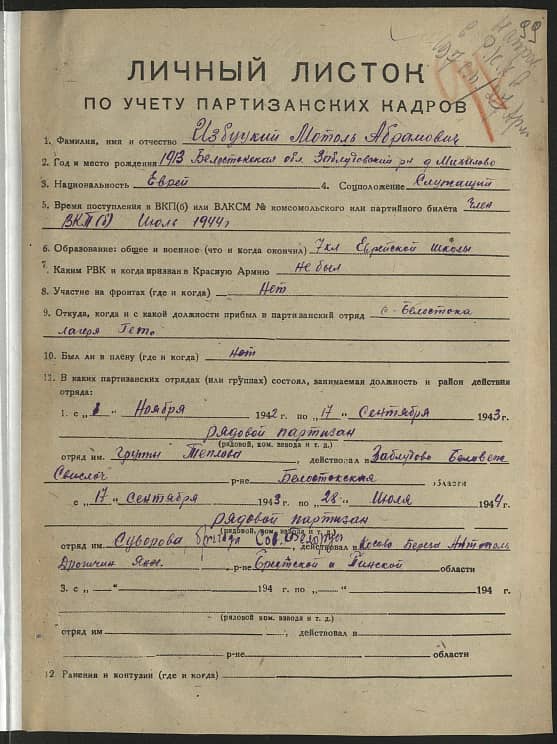 99
ЛИЧНЫЙ ЛИСТОК
ПО УЧЕТУ ПАРТИЗАНСКИХ КАДРОВ
1. Фамилия, имя и отчество Избуцкий Мотоль Абрамович
2. Год и место рождения 1913 Белостокская обл. Заблудовский р-н д. Михалово
3. Национальность Еврей 4. Соцположение Служащий
5. Время поступления в ВКП(б) или ВЛКСМ № комсомольского или партийного билета Член
ВКП(б) Июль 1944г
6. Образование: общее и военное (что и когда окончил) 7 кл Еврейской школы
7. Каким РВК и когда призван в Красную Армию не был
8. Участие на фронтах (где и когда) Нет
9. Откуда, когда и с какой должности прибыл в партизанский отряд с Белостока
лагеря Гето
10. Был ли в плену (где и когда) нет
11. В каких партизанских отрядах (или группах) состоял, занимаемая должность и район действия
отряда:
1. с „1“ Ноября 1942 г. по „17“ Сентября 1943 г.
рядовой партизан
(рядовой, ком. взвода и т. д.)
отряд им. группы Теплова, действовал в Заблудово Беловеж
Свислоч р-не Белостокская области
с „17“ Сентября 1943 г. по „28“ Июля 1944 г.
рядовой партизан
(рядовой, ком. взвода и т. д.)
отряд им. Суворова бригада Сов. действовал в Косово Береза Антополь
Дрогичин р-не Брестской и Пинской области
3. с „ “ 194 г. по „ “ 194 г.
(рядовой, ком. взвода и т. д.)
отряд им , действовал в
р-не области
12 Ранения и контузии (где и когда)